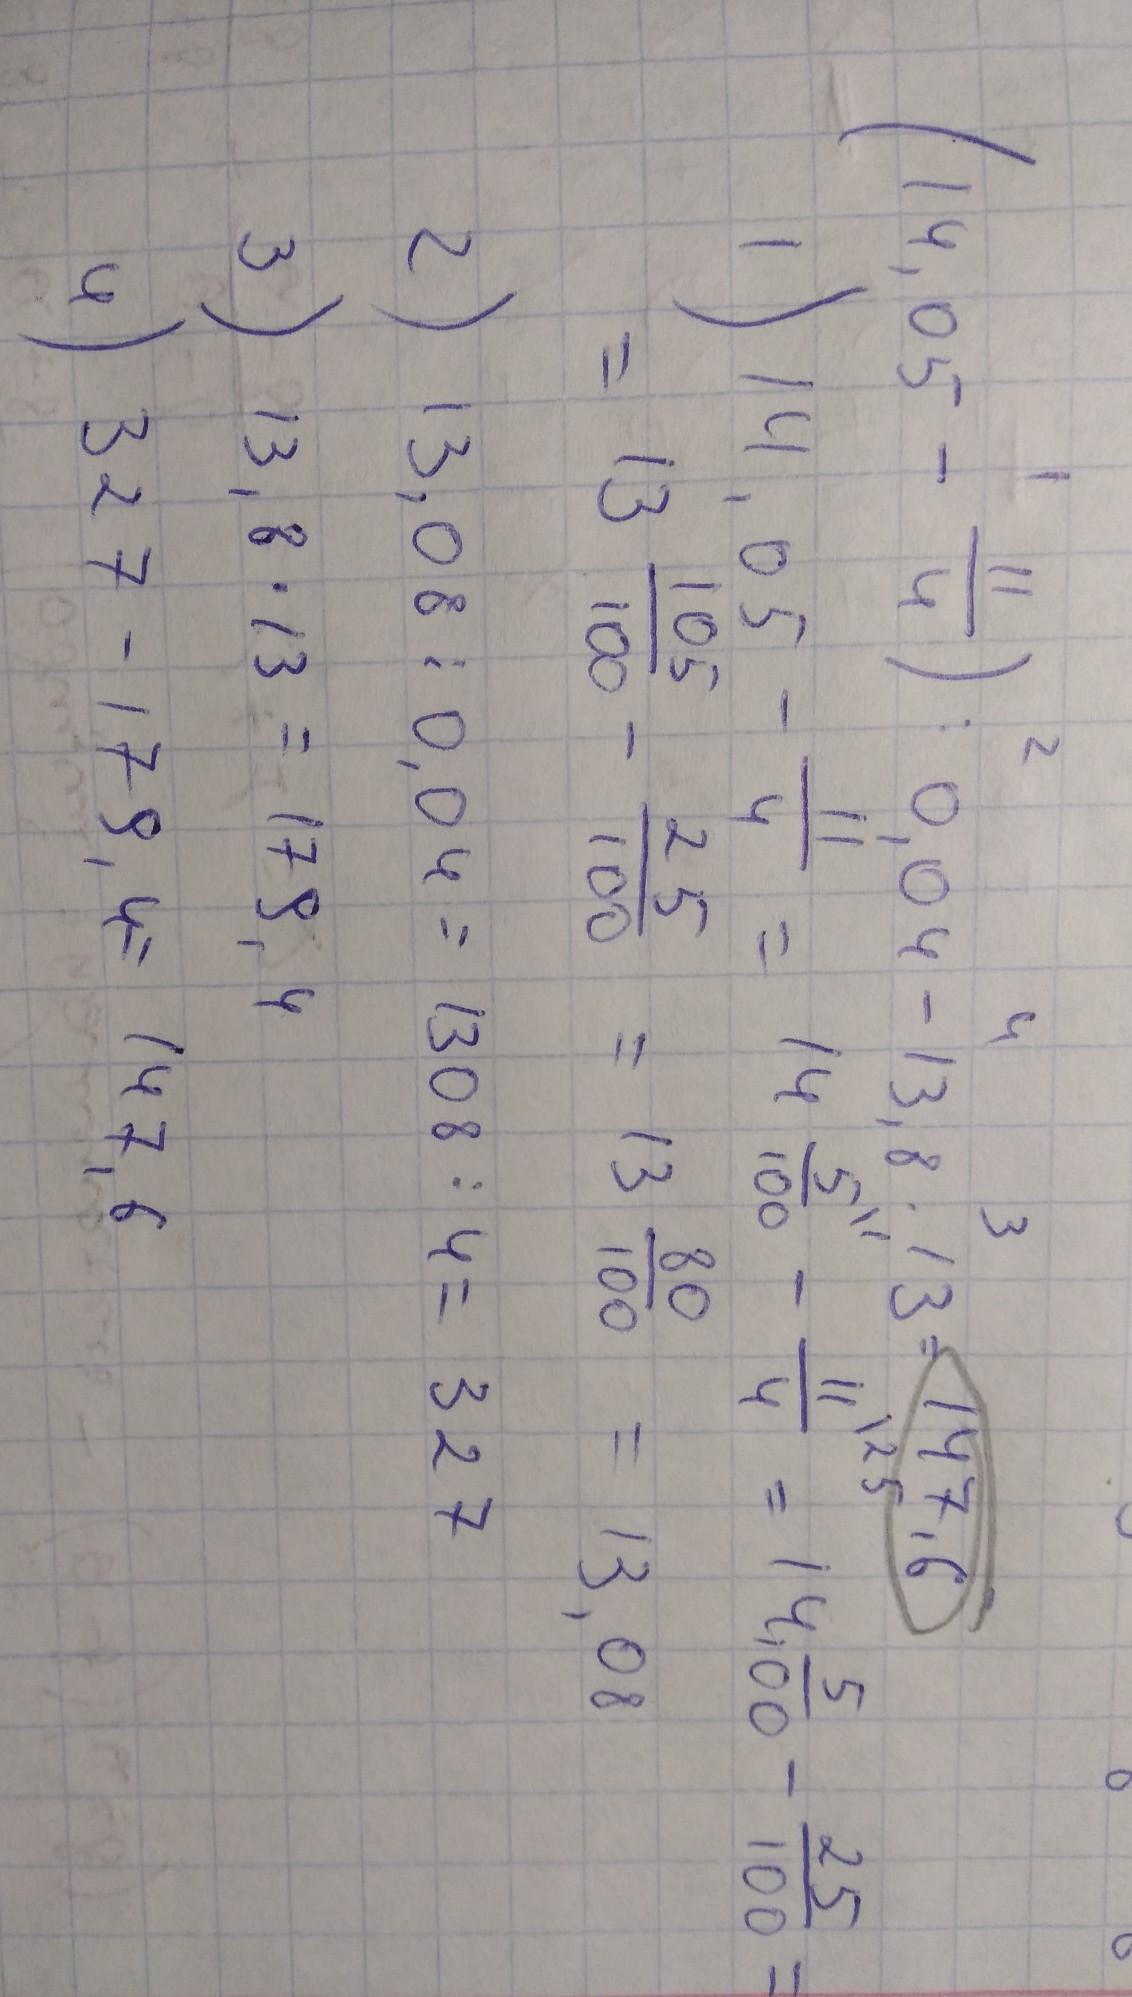 (14,05 - 11/4) : 0,04 - 13,8 · 13 = 147,6
1) 14,05 - 11/4 = 14 5/100 - 11/4 = 14 5/100 - 25/100 =
= 13 105/100 - 25/100 = 13 80/100 = 13,08
2) 13,08 : 0,04 = 1308 : 4 = 327
3) 13,8 · 13 = 179,4
4) 327 - 179,4 = 147,6